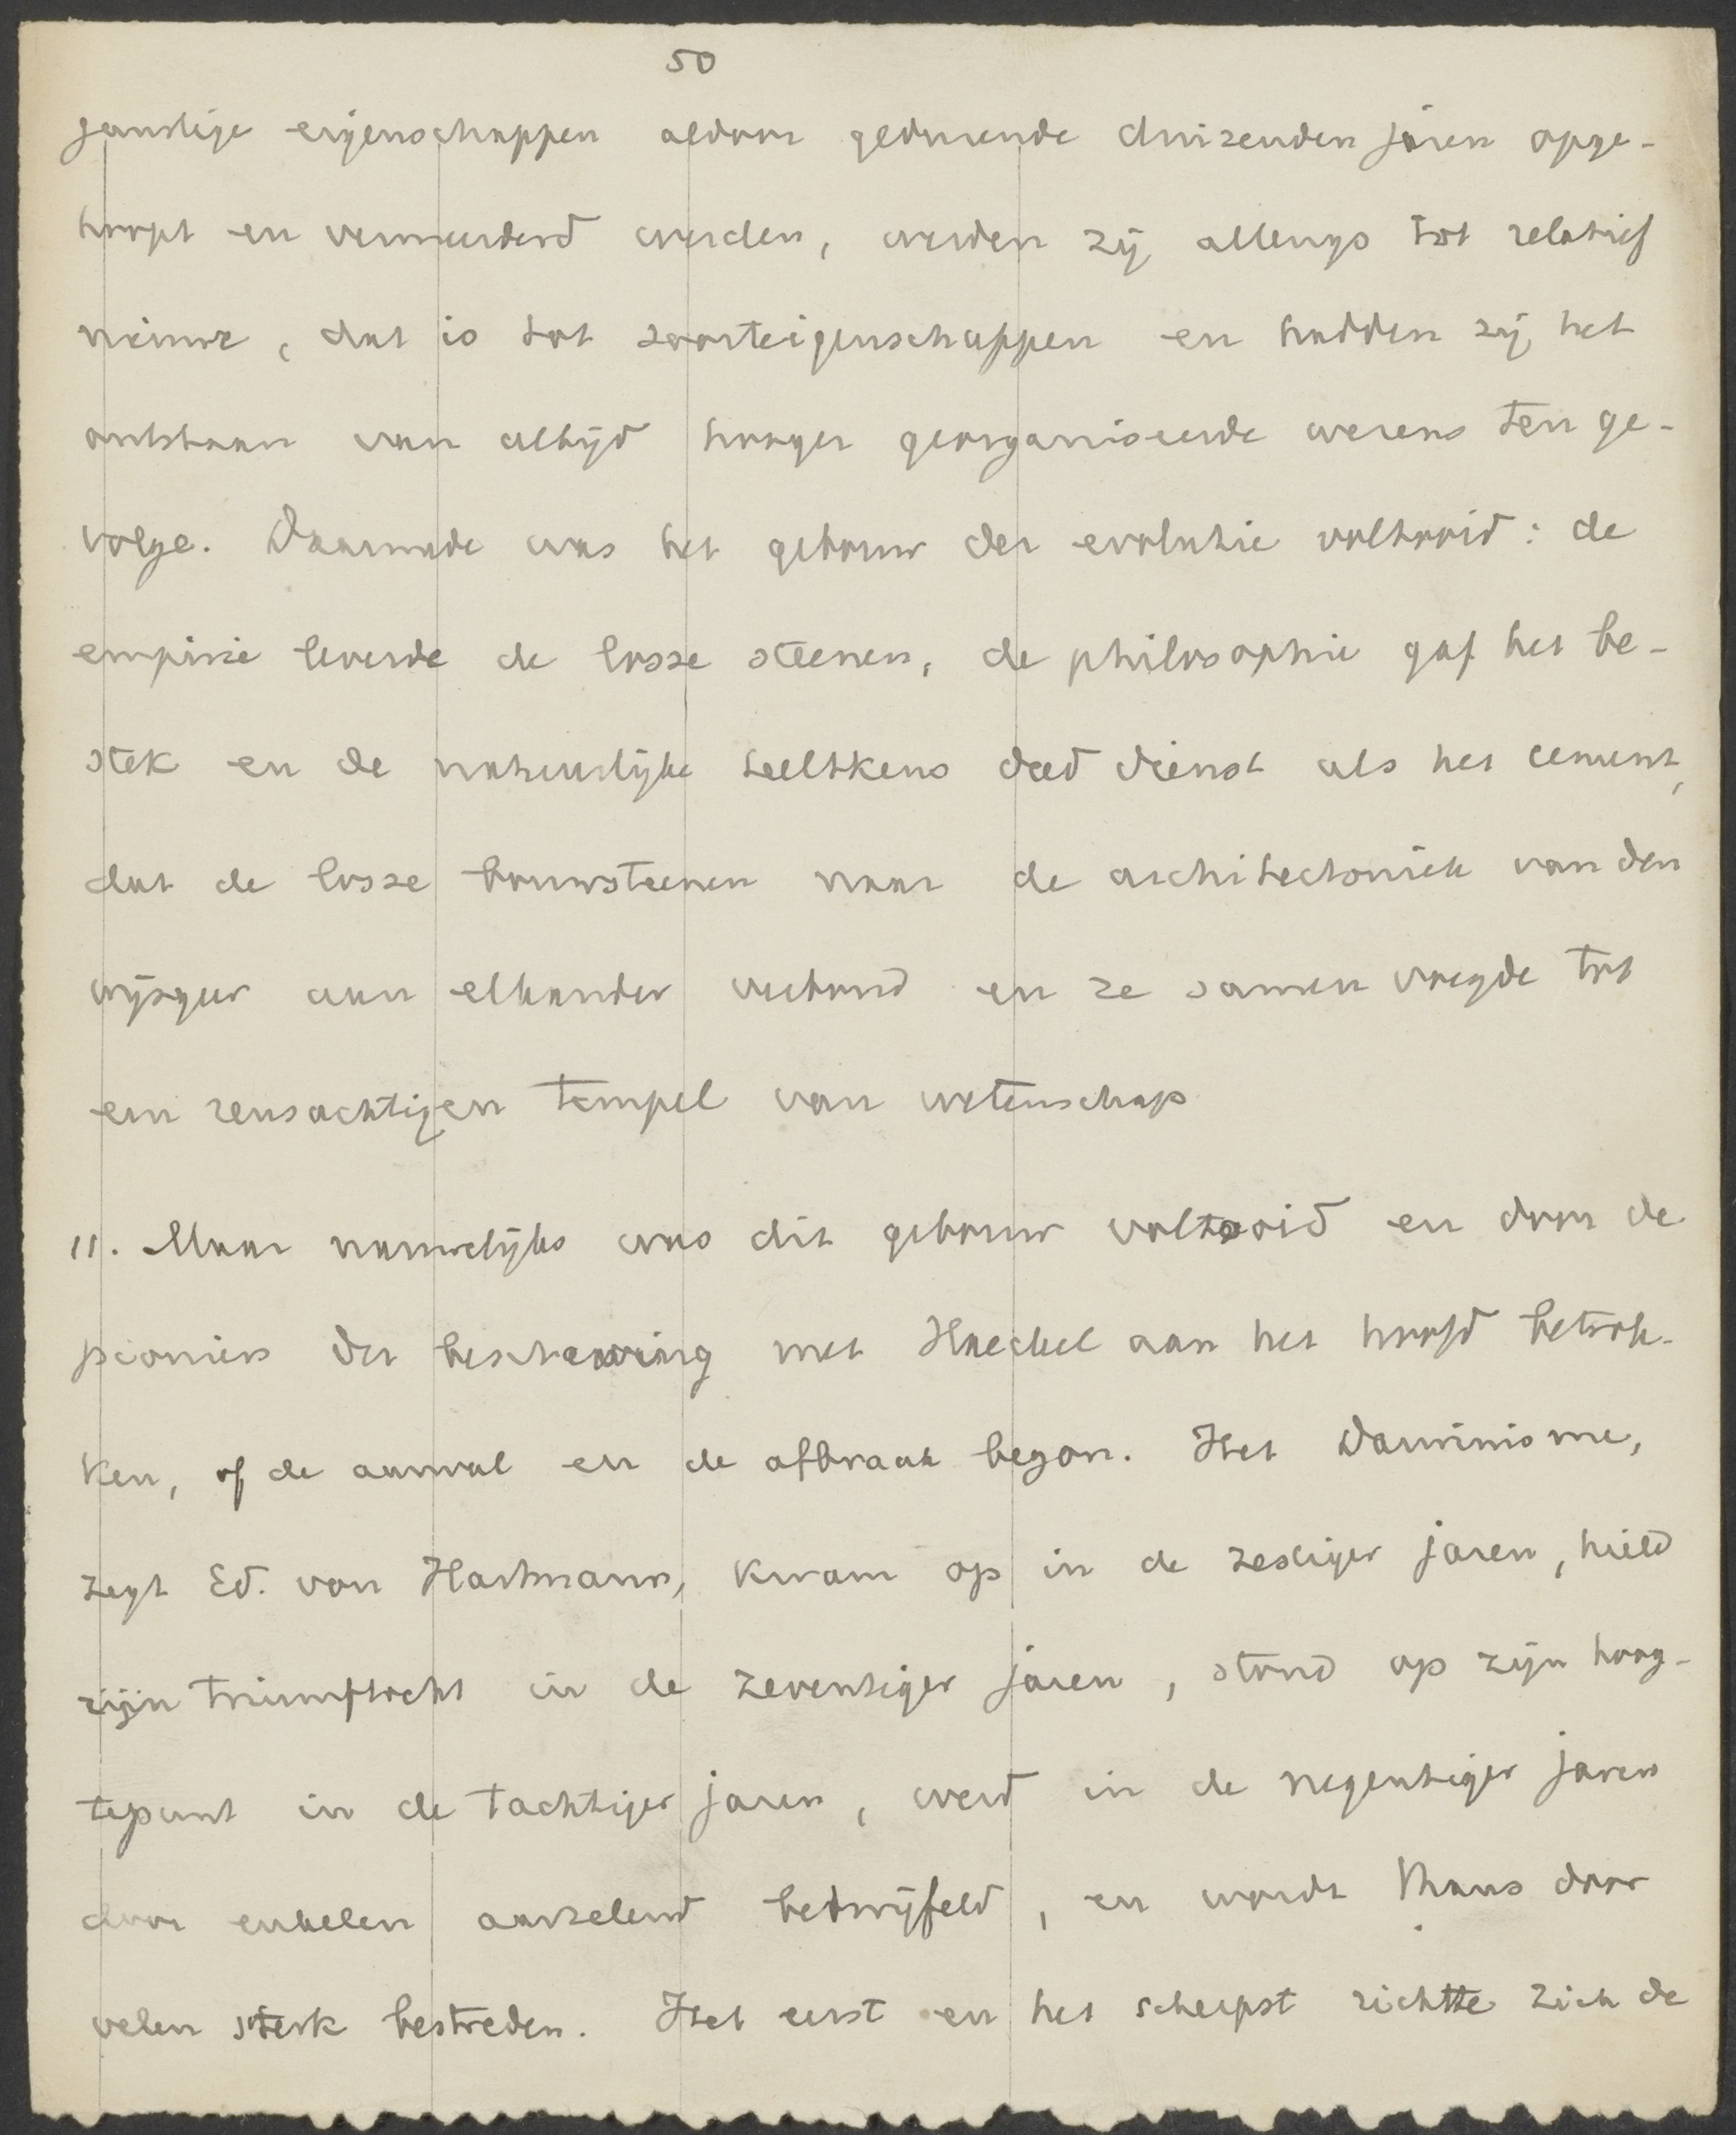 50
gunstige eigenschappen aldoor gedurende duizenden jaren opge-
hoopt en vermeerderd werden, werden zij allengs tot relatief
nieuwe, dat is tot soorteigenschappen en hadden zij het
ontstaan van altijd hooger georganiseerde wezens ten ge-
volge. Daarmede was het gebouw der evolutie voltooid: de
empirie leverde de losse steenen, de philosophie gaf het be-
stek en de natuurlijke teeltkeus deed dienst als het cement,
dat de losse bouwsteenen naar de architectoniek van den
wijsgeer aan elkander verbond en ze samen voegde tot
een reusachtigen tempel van wetenschap
11. Maar nauwelijks was dit gebouw voltooid en door de
pioniers der beschaving met Haeckel aan het hoofd betrok-
ken, of de aanval en de afbraak begon. Het Darwinisme,
zegt Ed. von Hartmann, kwam op in de zestiger jaren, hield
zijn triumftocht in de zeventiger jaren, stond op zijn hoog-
tepunt in de tachtiger jaren, werd in de negentiger jaren
door enkelen aarzelend betwijfeld, en wordt thans door
velen sterk bestreden. Het eerst en het scherpst richtte zich de